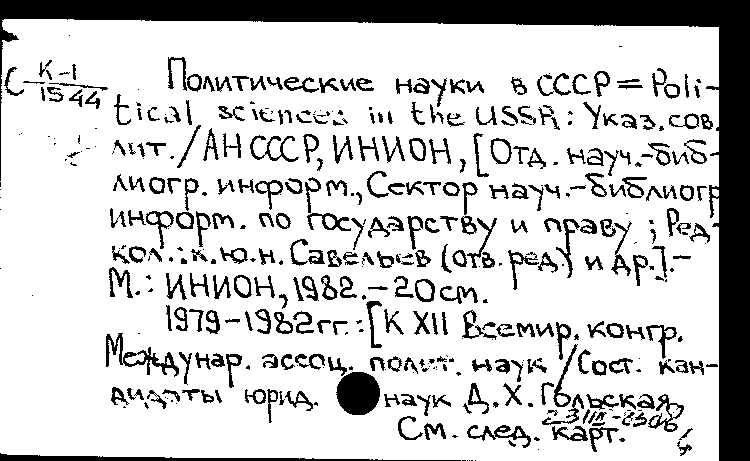 С К-1
1544
Политические науки в СССР = Poli-
tical sciences in the USSR: Указ. сов.
лит. / АН СССР, ИНИОН, [Отд. науч.-биб-
лиогр. информ., Сектор науч.-библиогр
информ. по государству и праву ; Ред-
кол.: к.ю.н. Савельев (отв. ред.) и др.].-
М.: ИНИОН, 1982.-20см.
1979-1982гг.: [К XII Всемир. конгр.
Междунар. ассоц. полит. наук / Сост. кан-
дидаты юрид. наук Д.Х. Гольская,
См. след. карт.